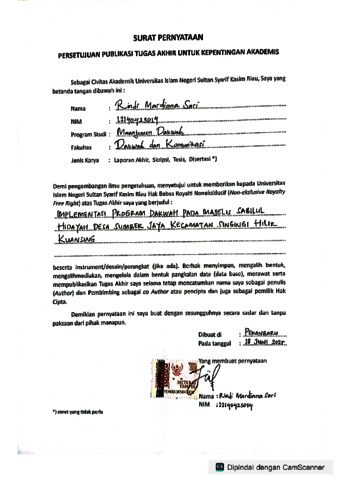 SURAT PERNYATAAN
PERSETUJUAN PUBLIKASI TUGAS AKHIR UNTUK KEPENTINGAN AKADEMIS
Sebagai Civitas Akademik Universitas Islam Negeri Sultan Syarif Kasim Riau, Saya yang
betanda tangan dibawah ini :
Nama : Rindi Mardiana Sari
NIM : 12190425014
Program Studi : Manajemen Dakwah
Fakultas : Dakwah dan Komunikasi
Jenis Karya : Laporan Akhir, Skripsi, Tesis, Disertasi *)
Demi pengembangan ilmu pengetahuan, menyetujui untuk memberikan kepada Universitas
Islam Negeri Sultan Syarif Kasim Riau Hak Bebas Royalti Noneksklusif (Non-eksklusive Royalty
Free Right) atas Tugas Akhir saya yang berjudul :
IMPLEMENTASI PROGRAM DAKWAH PADA MAJELIS SABILUL
HIDAYAH DESA SUMBER JAYA KECAMATAN SINGINGI HILIR
KUANSING
beserta instrument/desain/perangkat (jika ada). Berhak menyimpan, mengalih bentuk,
mengalihmediakan, mengelola dalam bentuk pangkalan data (data base), merawat serta
mempublikasikan Tugas Akhir saya selama tetap mencatumkan nama saya sebagai penulis
(Author) dan Pembimbing sebagai co Author atau pencipta dan juga sebagai pemilik Hak
Cipta.
Demikian pernyataan ini saya buat dengan sesungguhnya secara sadar dan tanpa
paksaan dari pihak manapun.
Dibuat di : PEKANBARU
Pada tanggal : 18 JUNI 2025
Yang membuat pernyataan
METERAI
TEMPEL
Nama : Rindi Mardiana Sari
NIM : 12190425014
*) coret yang tidak perlu
CS Dipindai dengan CamScanner